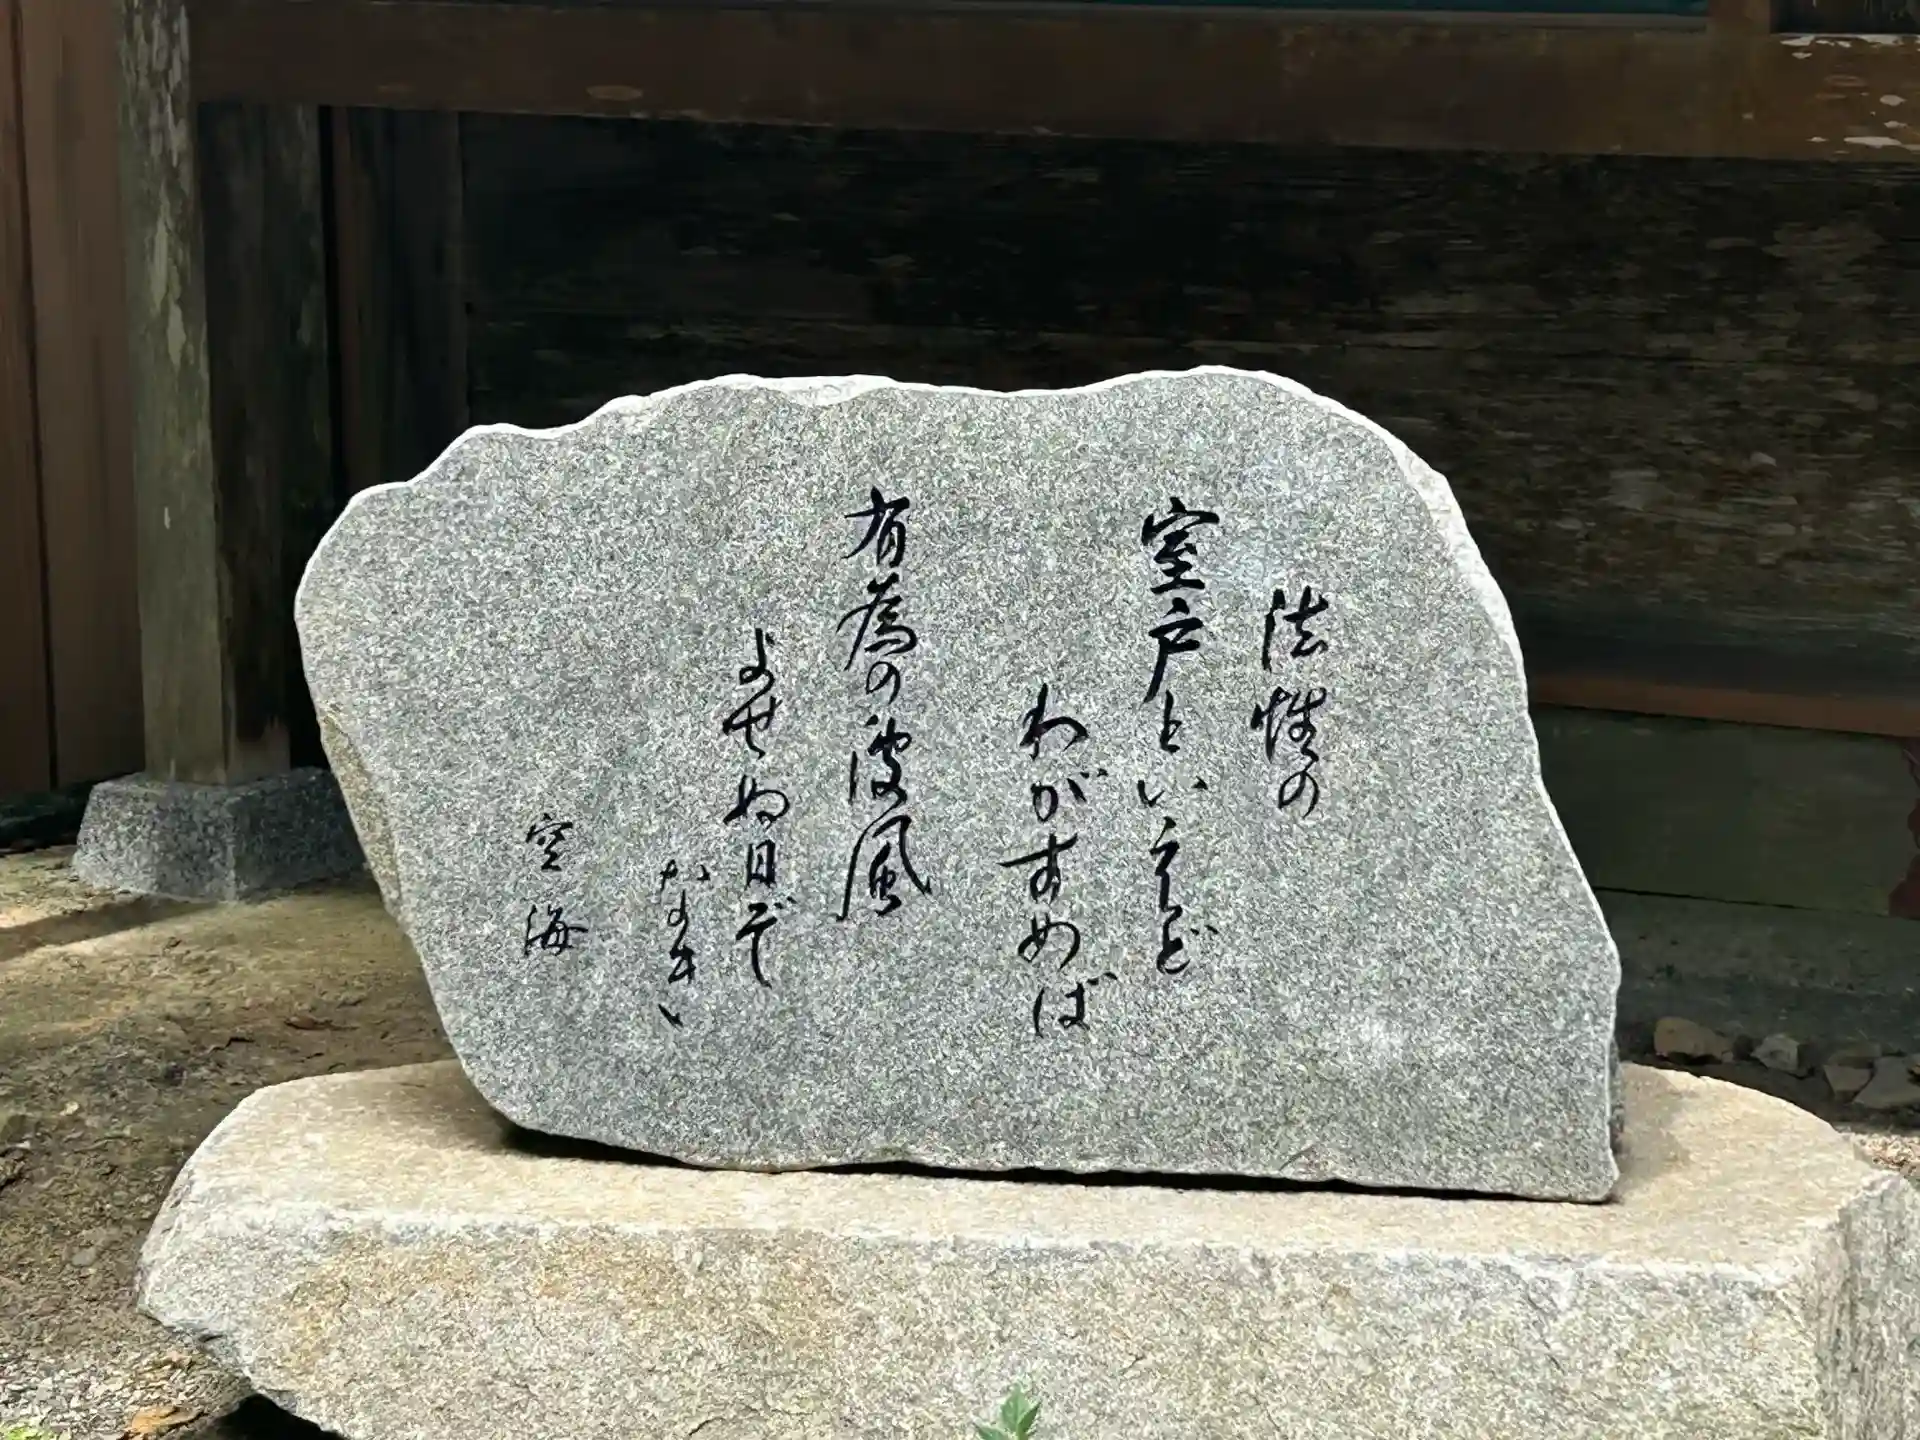 法性の
室戸といえど
わがすめば
有為の波風
よせぬ日ぞ
なき
空海